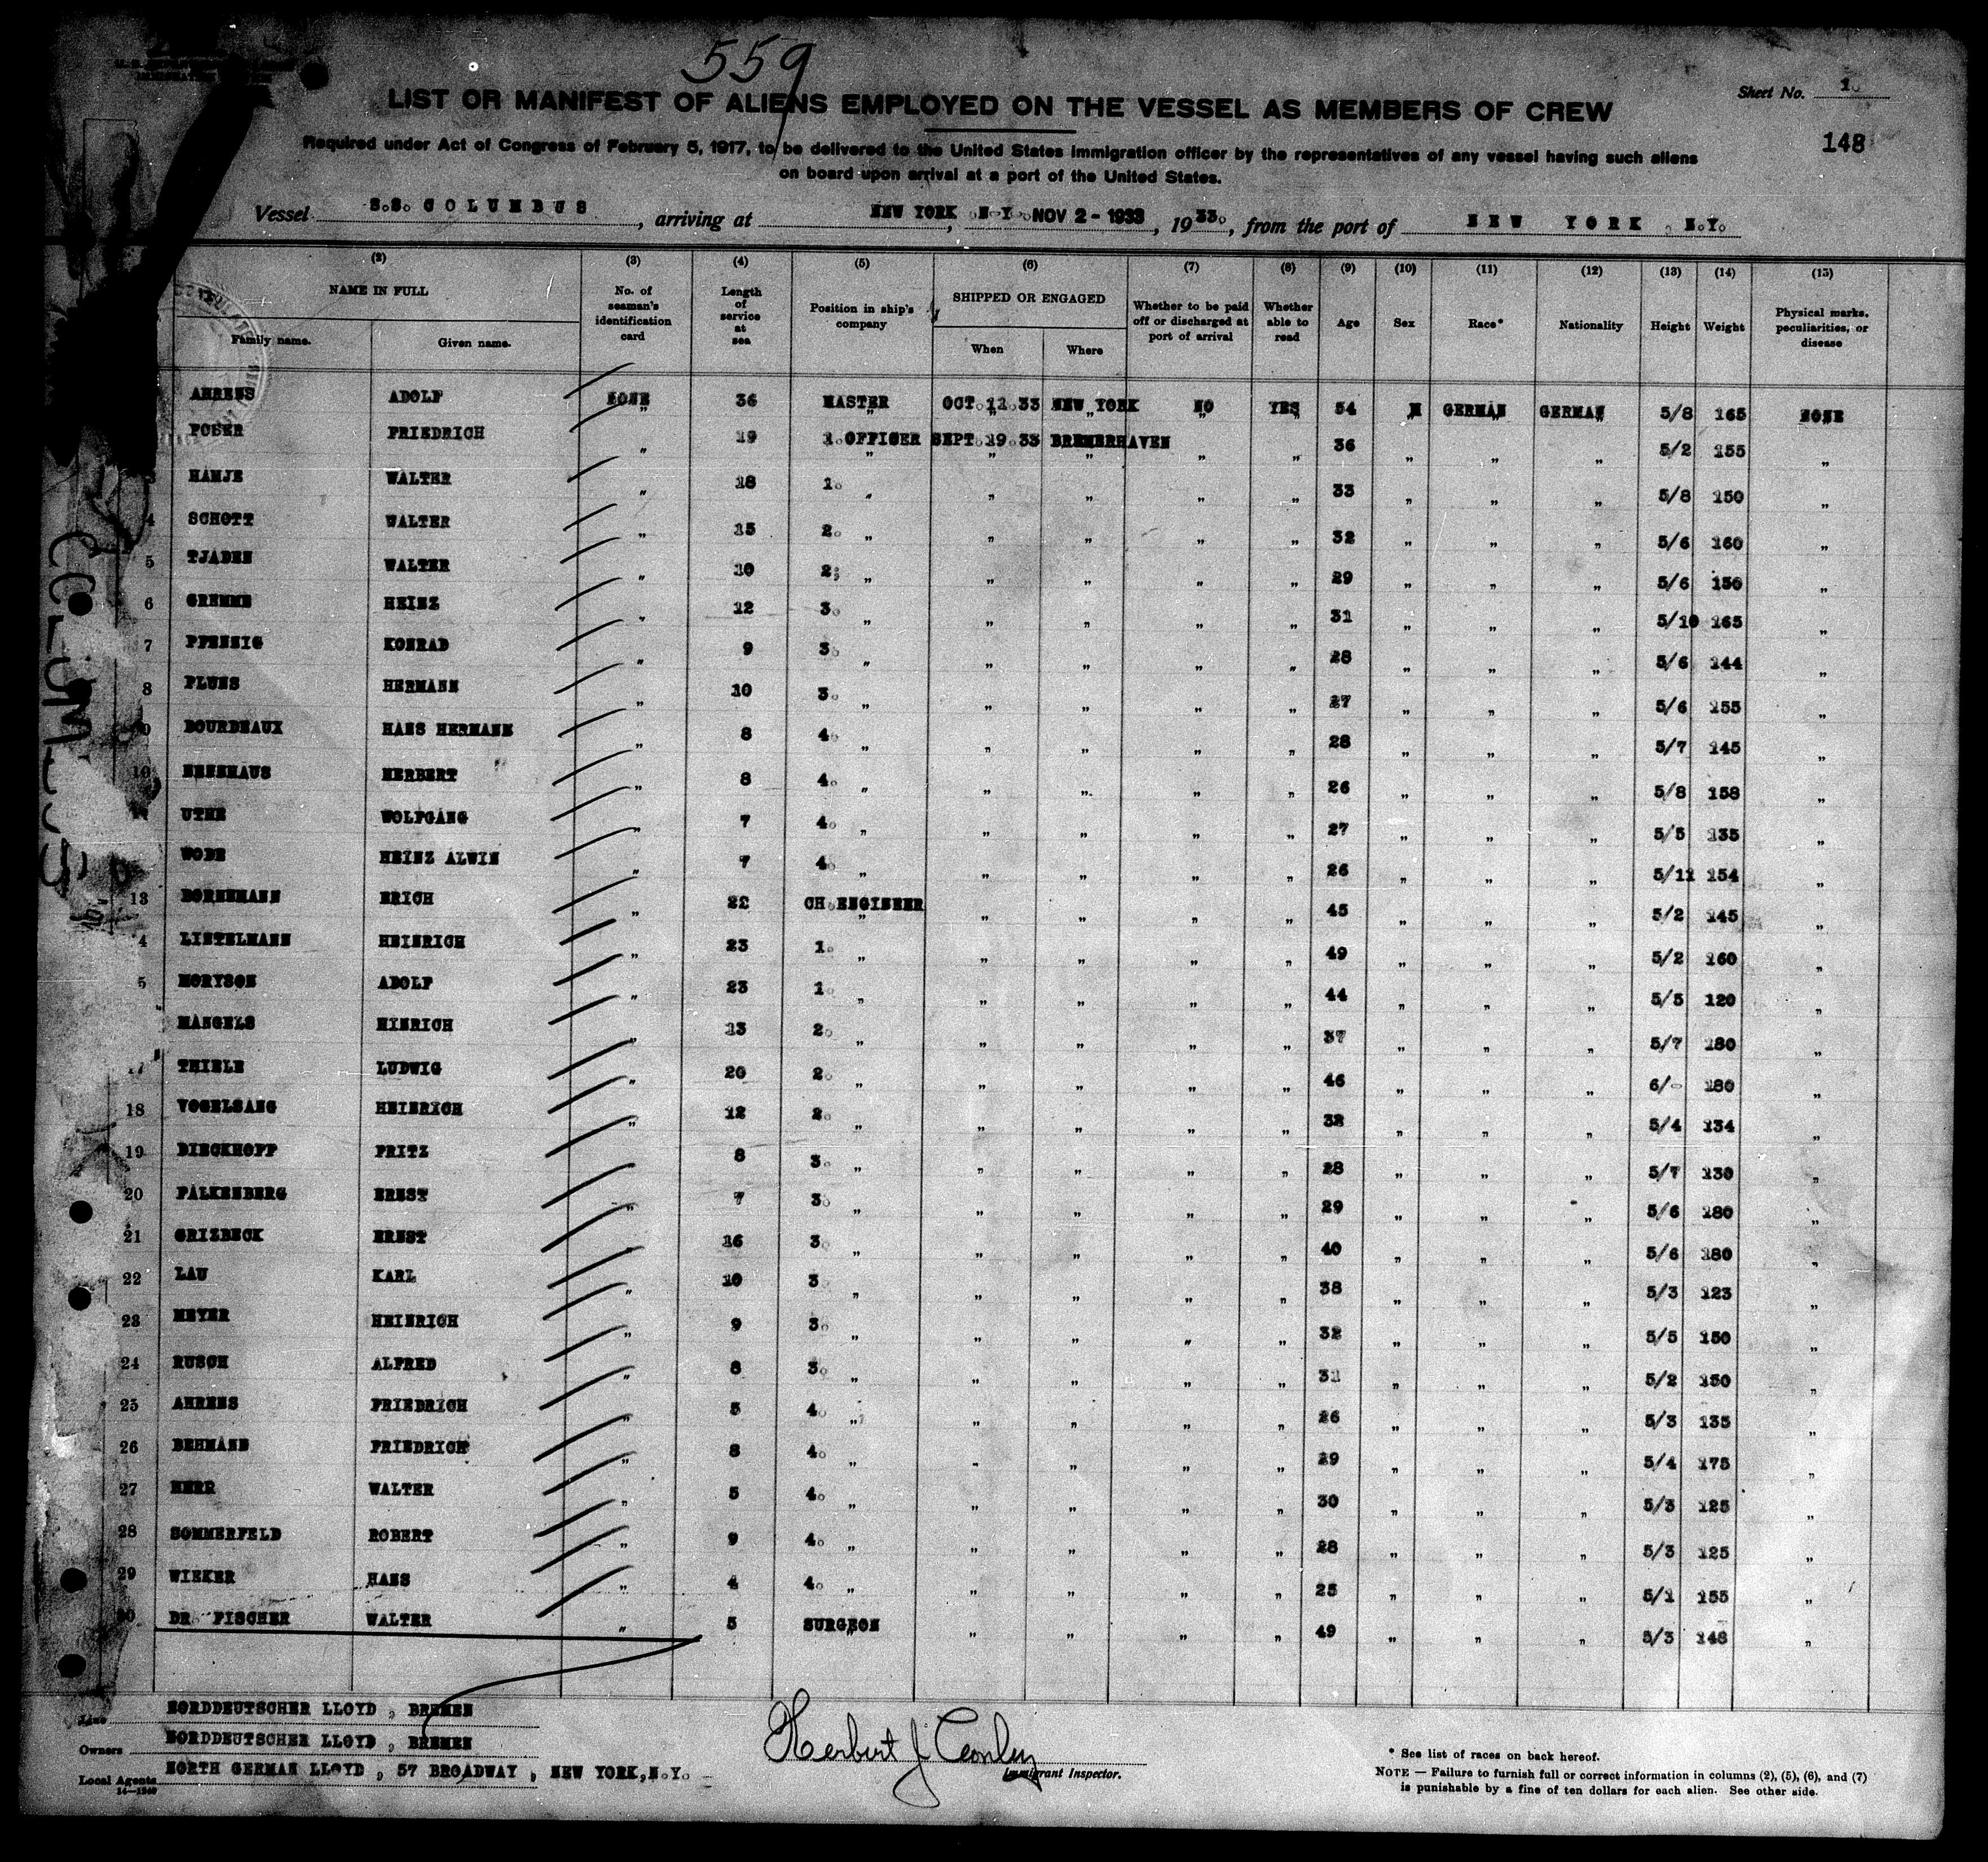 559
Sheet No. 1.
LIST OR MANIFEST OF ALIENS EMPLOYED ON THE VESSEL AS MEMBERS OF CREW
148
Required under Act of Congress of February 5, 1917, to be delivered to the United States immigration officer by the representatives of any vessel having such aliens
on board upon arrival at a port of the United States.
Vessel S.S. COLUMBUS, arriving at NEW YORK, N.Y. NOV 2 - 1933, 1933., from the port of NEW YORK, N.Y.
(2) (3) (4) (5) (6) (7) (8) (9) (10) (11) (12) (13) (14) (15)
NAME IN FULL Family name. Given name. No. of seaman's identification card Length of service at sea Position in ship's company SHIPPED OR ENGAGED When Where Whether to be paid off or discharged at port of arrival Whether able to read Age Sex Race* Nationality Height Weight Physical marks, peculiarities, or disease
AHRENS ADOLF NONE 36 MASTER OCT.12.33 NEW YORK NO YES 54 M GERMAN GERMAN 5/8 165 NONE
POSER FRIEDRICH " 19 1.OFFICER SEPT.19.33 BREMERHAVEN " " 36 " " " 5/2 155 "
3 HAMJE WALTER " 18 1. " " " " " 33 " " " 5/8 150 "
4 SCHOTT WALTER " 15 2. " " " " " 32 " " " 5/6 160 "
5 TJADEN WALTER " 10 2. " " " " " 29 " " " 5/6 150 "
6 GREMME HEINZ " 12 3. " " " " " 31 " " " 5/10 165 "
7 PFENNIG KONRAD " 9 3. " " " " " 28 " " " 5/6 144 "
8 PLUNS HERMANN " 10 3. " " " " " 27 " " " 5/6 155 "
9 BOURDEAUX HANS HERMANN " 8 4. " " " " " 28 " " " 5/7 145 "
10 HERBERT " 8 4. " " " " " 26 " " " 5/8 158 "
UTHE WOLFGANG " 7 4. " " " " " 27 " " " 5/5 135 "
WODE HEINZ ALWIN " 7 4. " " " " " 26 " " " 5/11 154 "
13 BORNEMANN ERICH " 22 CH.ENGINEER " " " " 45 " " " 5/2 145 "
4 LINTELMANN HEINRICH " 23 1. " " " " " 49 " " " 5/2 160 "
5 MORYSON ADOLF " 23 1. " " " " " 44 " " " 5/5 120 "
MANGELS HINRICH " 13 2. " " " " " 37 " " " 5/7 180 "
17 THIELE LUDWIG " 20 2. " " " " " 46 " " " 6/- 180 "
18 VOGELSANG HEINRICH " 12 2. " " " " " 32 " " " 5/4 134 "
19 DIECKHOFF FRITZ " 8 3. " " " " " 28 " " " 5/7 130 "
20 FALKENBERG ERNST " 7 3. " " " " " 29 " " " 5/6 180 "
21 GRIZBECK ERNST " 16 3. " " " " " 40 " " " 5/6 180 "
22 LAU KARL " 10 3. " " " " " 38 " " " 5/3 123 "
23 MEYER HEINRICH " 9 3. " " " " " 32 " " " 5/5 150 "
24 RUSCH ALFRED " 8 3. " " " " " 31 " " " 5/2 150 "
25 AHRENS FRIEDRICH " 5 4. " " " " " 26 " " " 5/3 135 "
26 BEHMANN FRIEDRICH " 8 4. " " " " " 29 " " " 5/4 175 "
27 HERR WALTER " 5 4. " " " " " 30 " " " 5/3 125 "
28 SOMMERFELD ROBERT " 9 4. " " " " " 28 " " " 5/3 125 "
29 WIEKER HANS " 4 4. " " " " " 25 " " " 5/1 155 "
30 DR. FISCHER WALTER " 5 SURGEON " " " " 49 " " " 5/3 148 "
COLUMBUS
Line NORDDEUTSCHER LLOYD, BREMEN
Owners NORDDEUTSCHER LLOYD, BREMEN
Local Agents NORTH GERMAN LLOYD, 57 BROADWAY, NEW YORK, N.Y.
14-1240
Herbert J Conley
Immigrant Inspector.
* See list of races on back hereof.
NOTE — Failure to furnish full or correct information in columns (2), (5), (6), and (7)
is punishable by a fine of ten dollars for each alien. See other side.